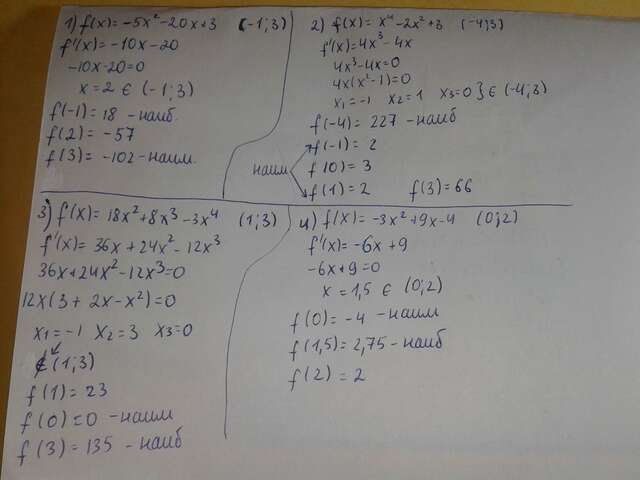 1) f(x) = -5x² - 20x + 3 (-1; 3)
f'(x) = -10x - 20
-10x - 20 = 0
x = 2 ∈ (-1; 3)
f(-1) = 18 - наиб.
f(2) = -57
f(3) = -102 - наим.
2) f(x) = x⁴ - 2x² + 3 (-4; 3)
f'(x) = 4x³ - 4x
4x³ - 4x = 0
4x(x² - 1) = 0
x₁ = -1 x₂ = 1 x₃ = 0 } ∈ (-4; 3)
f(-4) = 227 - наиб
f(-1) = 2
наим
f(0) = 3
f(1) = 2 f(3) = 66
3) f(x) = 18x² + 8x³ - 3x⁴ (1; 3)
f'(x) = 36x + 24x² - 12x³
36x + 24x² - 12x³ = 0
12x(3 + 2x - x²) = 0
x₁ = -1 x₂ = 3 x₃ = 0
∉ (1; 3)
f(1) = 23
f(0) = 0 - наим
f(3) = 135 - наиб
4) f(x) = -3x² + 9x - 4 (0; 2)
f'(x) = -6x + 9
-6x + 9 = 0
x = 1,5 ∈ (0; 2)
f(0) = -4 - наим
f(1,5) = 2,75 - наиб
f(2) = 2